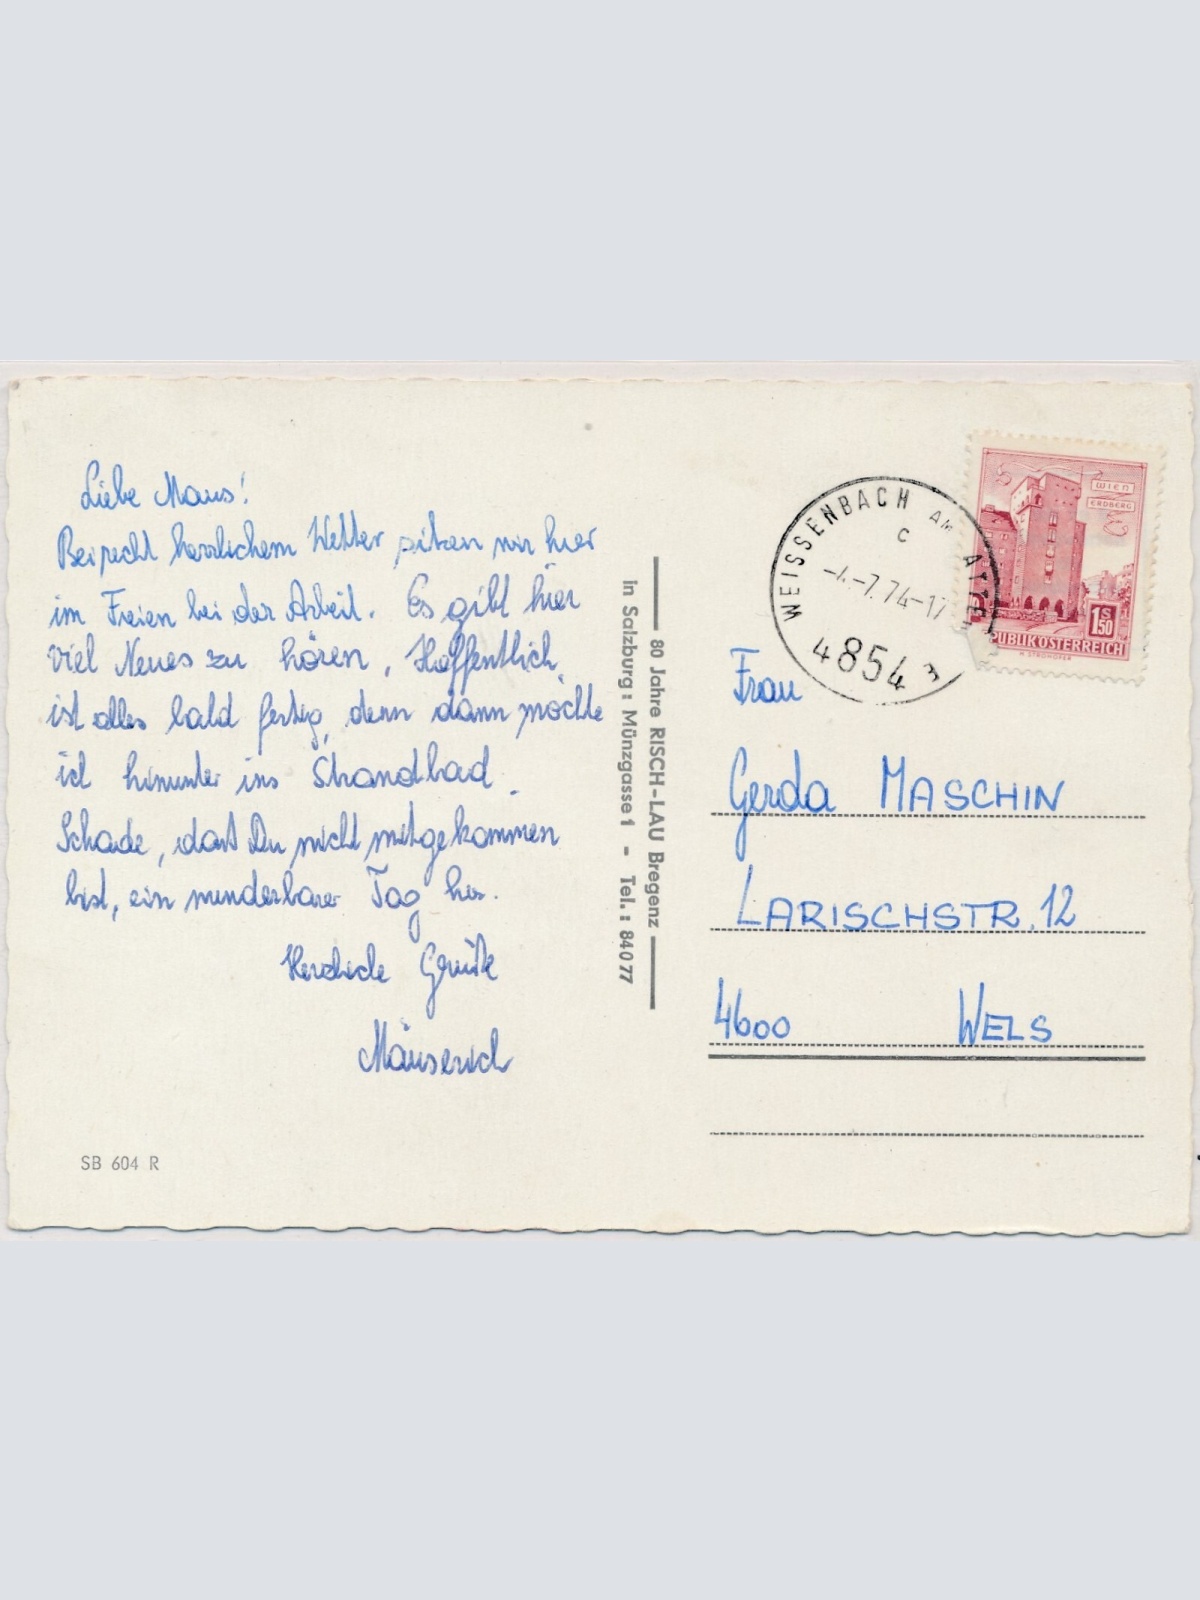 Liebe Maus!
Bei recht herrlichem Wetter sitzen wir hier
im Freien bei der Arbeit. Es gibt hier
viel Neues zu hören. Hoffentlich
ist alles bald fertig, denn dann möchte
ich hinunter ins Strandbad.
Schade, daß Du nicht mitgekommen
bist, ein wunderbarer Tag
Herzliche Grüße
Mäuserich
SB 604 R
80 Jahre RISCH-LAU Bregenz
in Salzburg: Münzgasse 1 - Tel.: 84077
WEISSENBACH AM ATTE
c
-4.-7.74-17
4854
3
WIEN
ERDBERG
1S50
PUBLIK ÖSTERREICH
Frau
Gerda MASCHIN
LARISCHSTR. 12
4600 WELS